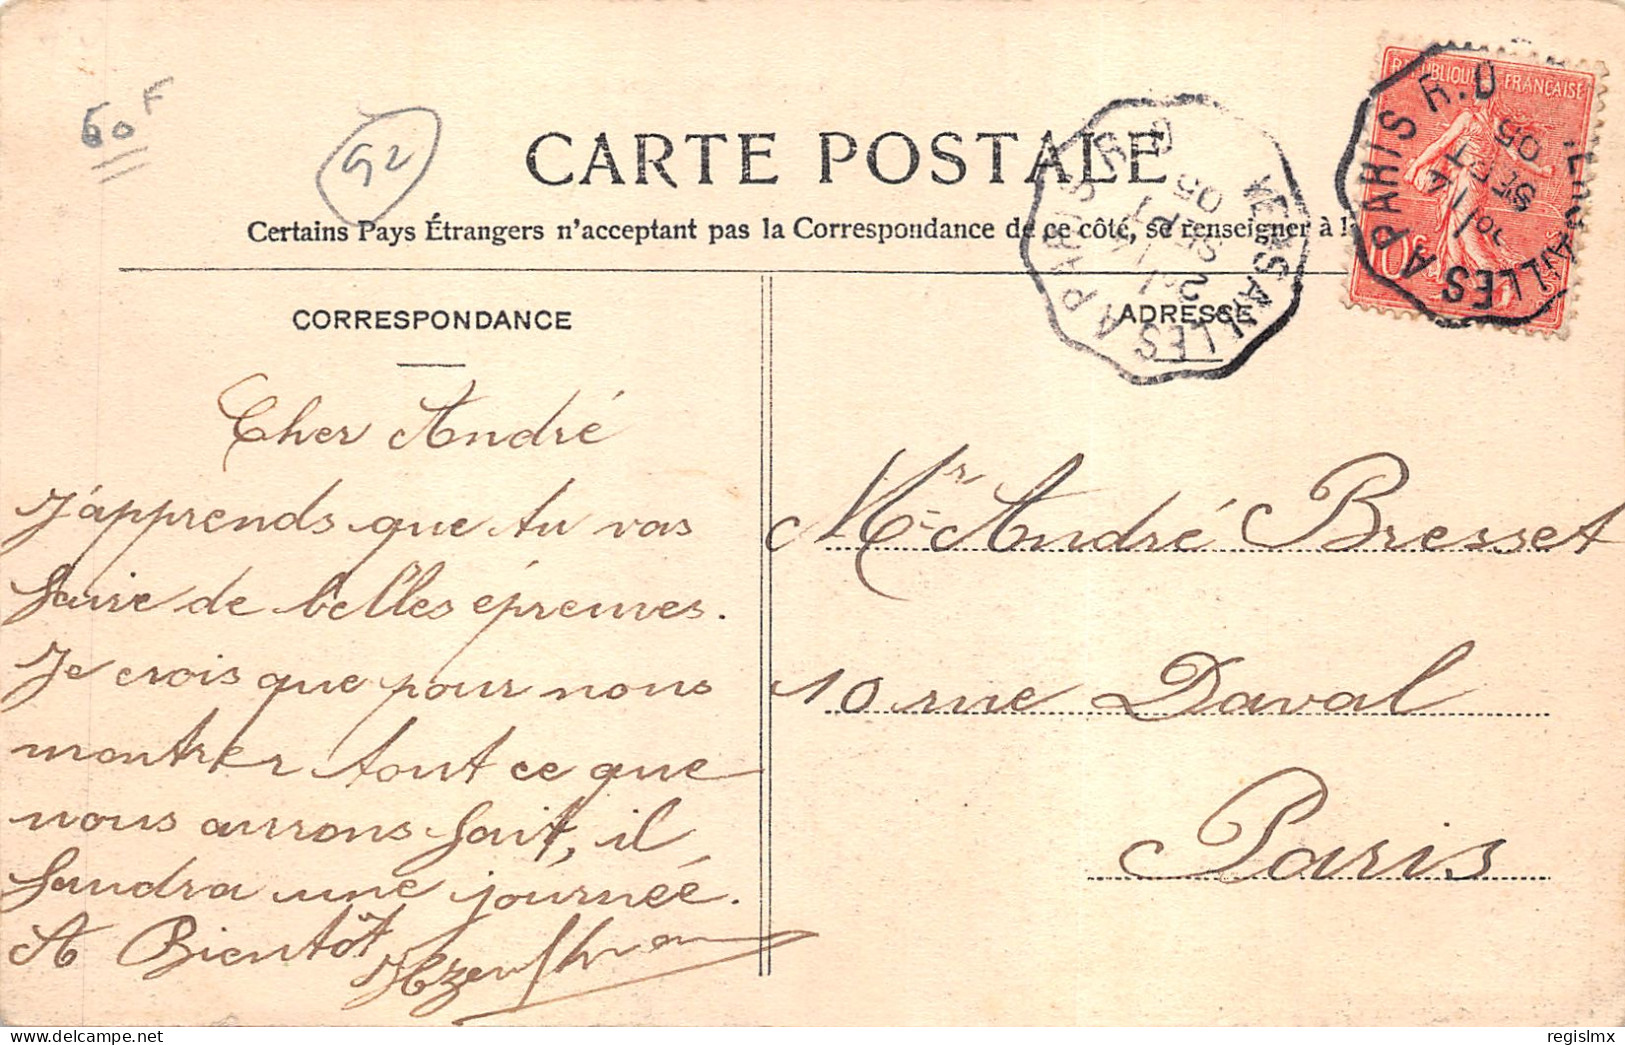 60F
92
CARTE POSTALE
Certains Pays Étrangers n'acceptant pas la Correspondance de ce côté, se renseigner à l
CORRESPONDANCE
ADRESSE
VERSAILLES A PARIS R.D
SEPT
05
RÉPUBLIQUE FRANÇAISE
10c
VERSAILLES A PARIS R.D
SEPT
05
Cher André
J'apprends que tu vas
faire de belles épreuves.
Je crois que pour nous
montrer tout ce que
nous aurons fait, il
faudra une journée.
A Bientôt
Mr André Bresset
10 rue Daval
Paris
regislmx